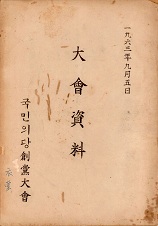 一九六三年九月五日
大會資料
국민의당創黨大會